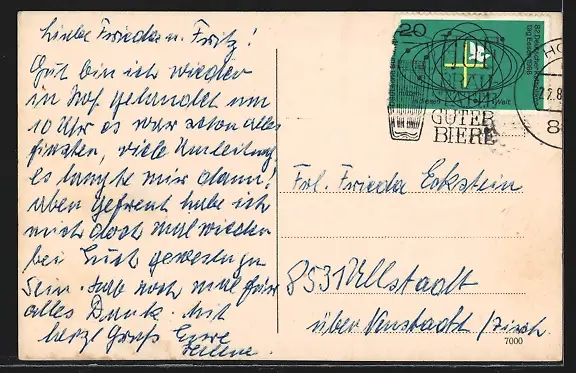 Liebe Frieda u. Fritz!
Gut bin ich wieder
in Hof gelandet um
10 Uhr es war schon alles
finster, viele Umleitung
es langte mir dann!
aber gefreut habe ich
mich doch mal wieder
bei Euch gewesen zu
sein. hab noch mal für
alles Dank. Mit
herzl Gruß Eure
Helene.
20
82. Deutscher Katholikentag Essen 1968
Mitten in dieser Welt
GUTER
BIERE
HO
8
Frl. Frieda Eckstein
8531 Ullstadt
über Neustadt / Aisch
7000